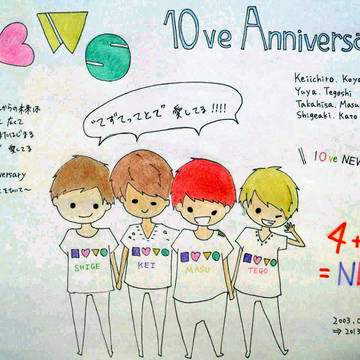 ♥WS
10ve Anniversa
Keiichiro. Koya
Yuya. Tegoshi
Takahisa. Masu
Shigeaki. Kato
"てをてってとで"愛してる!!!!
からの未来は
広くて
愛してる
versary
10ve NEW
SHIGE
KEI
MASU
TEGO
4+
= NE
2003.
⇒ 2013